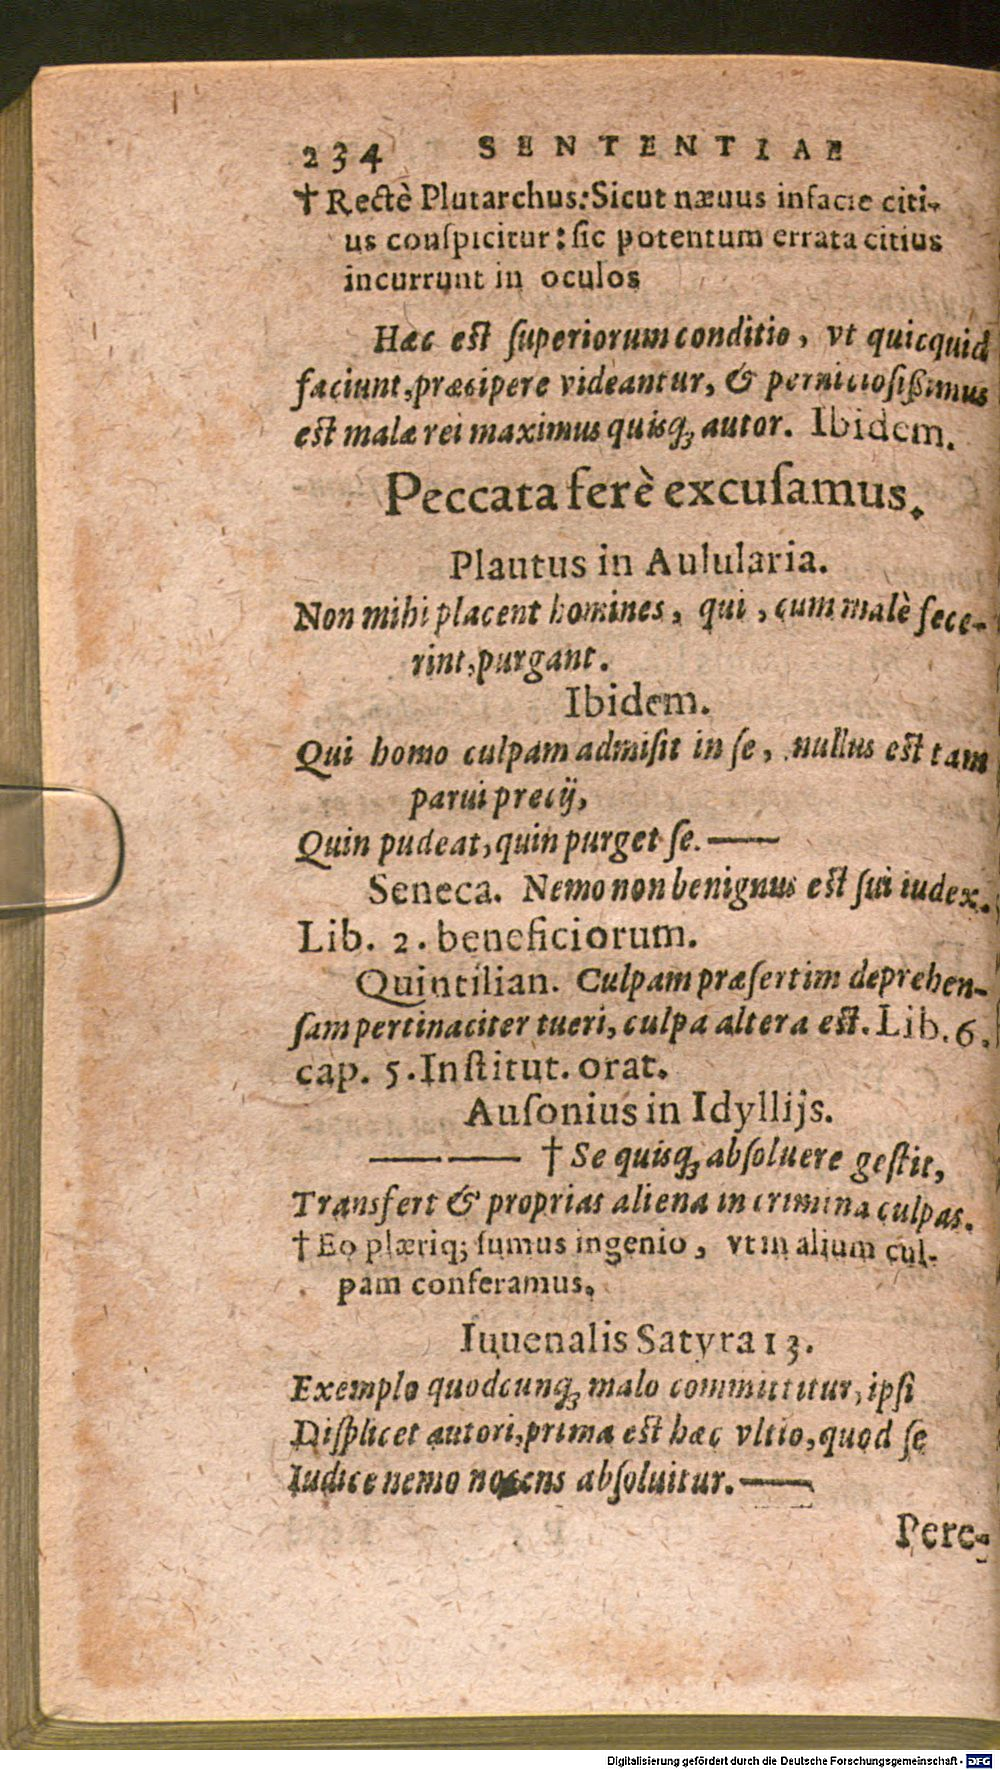 234 SENTENTIAE
† Rectè Plutarchus: Sicut næuus in facie citi-
us conſpicitur: ſic potentum errata citius
incurrunt in oculos
Hæc est ſuperiorum conditio, vt quicquid
faciunt, præcipere videantur, & pernicioſißimus
est malæ rei maximus quisq; autor. Ibidem.
Peccata ferè excuſamus.
Plautus in Aulularia.
Non mihi placent homines, qui, cum malè fece-
rint, purgant.
Ibidem.
Qui homo culpam admiſit in ſe, nullus est tam
parui precij,
Quin pudeat, quin purget ſe. ——
Seneca. Nemo non benignus est ſui iudex.
Lib. 2. beneficiorum.
Quintilian. Culpam præſertim deprehen-
ſam pertinaciter tueri, culpa altera est. Lib. 6.
cap. 5. Inſtitut. orat.
Auſonius in Idyllijs.
—— —— † Se quisq; abſoluere geſtit,
Transfert & proprias aliena in crimina culpas.
† Eo plæriq; ſumus ingenio, vt in alium cul-
pam conferamus.
Iuuenalis Satyra 13.
Exemplo quodcunq; malo committitur, ipſi
Diſplicet autori, prima est hæc vltio, quod ſe
Iudice nemo nocens abſoluitur. ——
Pere-
Digitalisierung gefördert durch die Deutsche Forschungsgemeinschaft - DFG